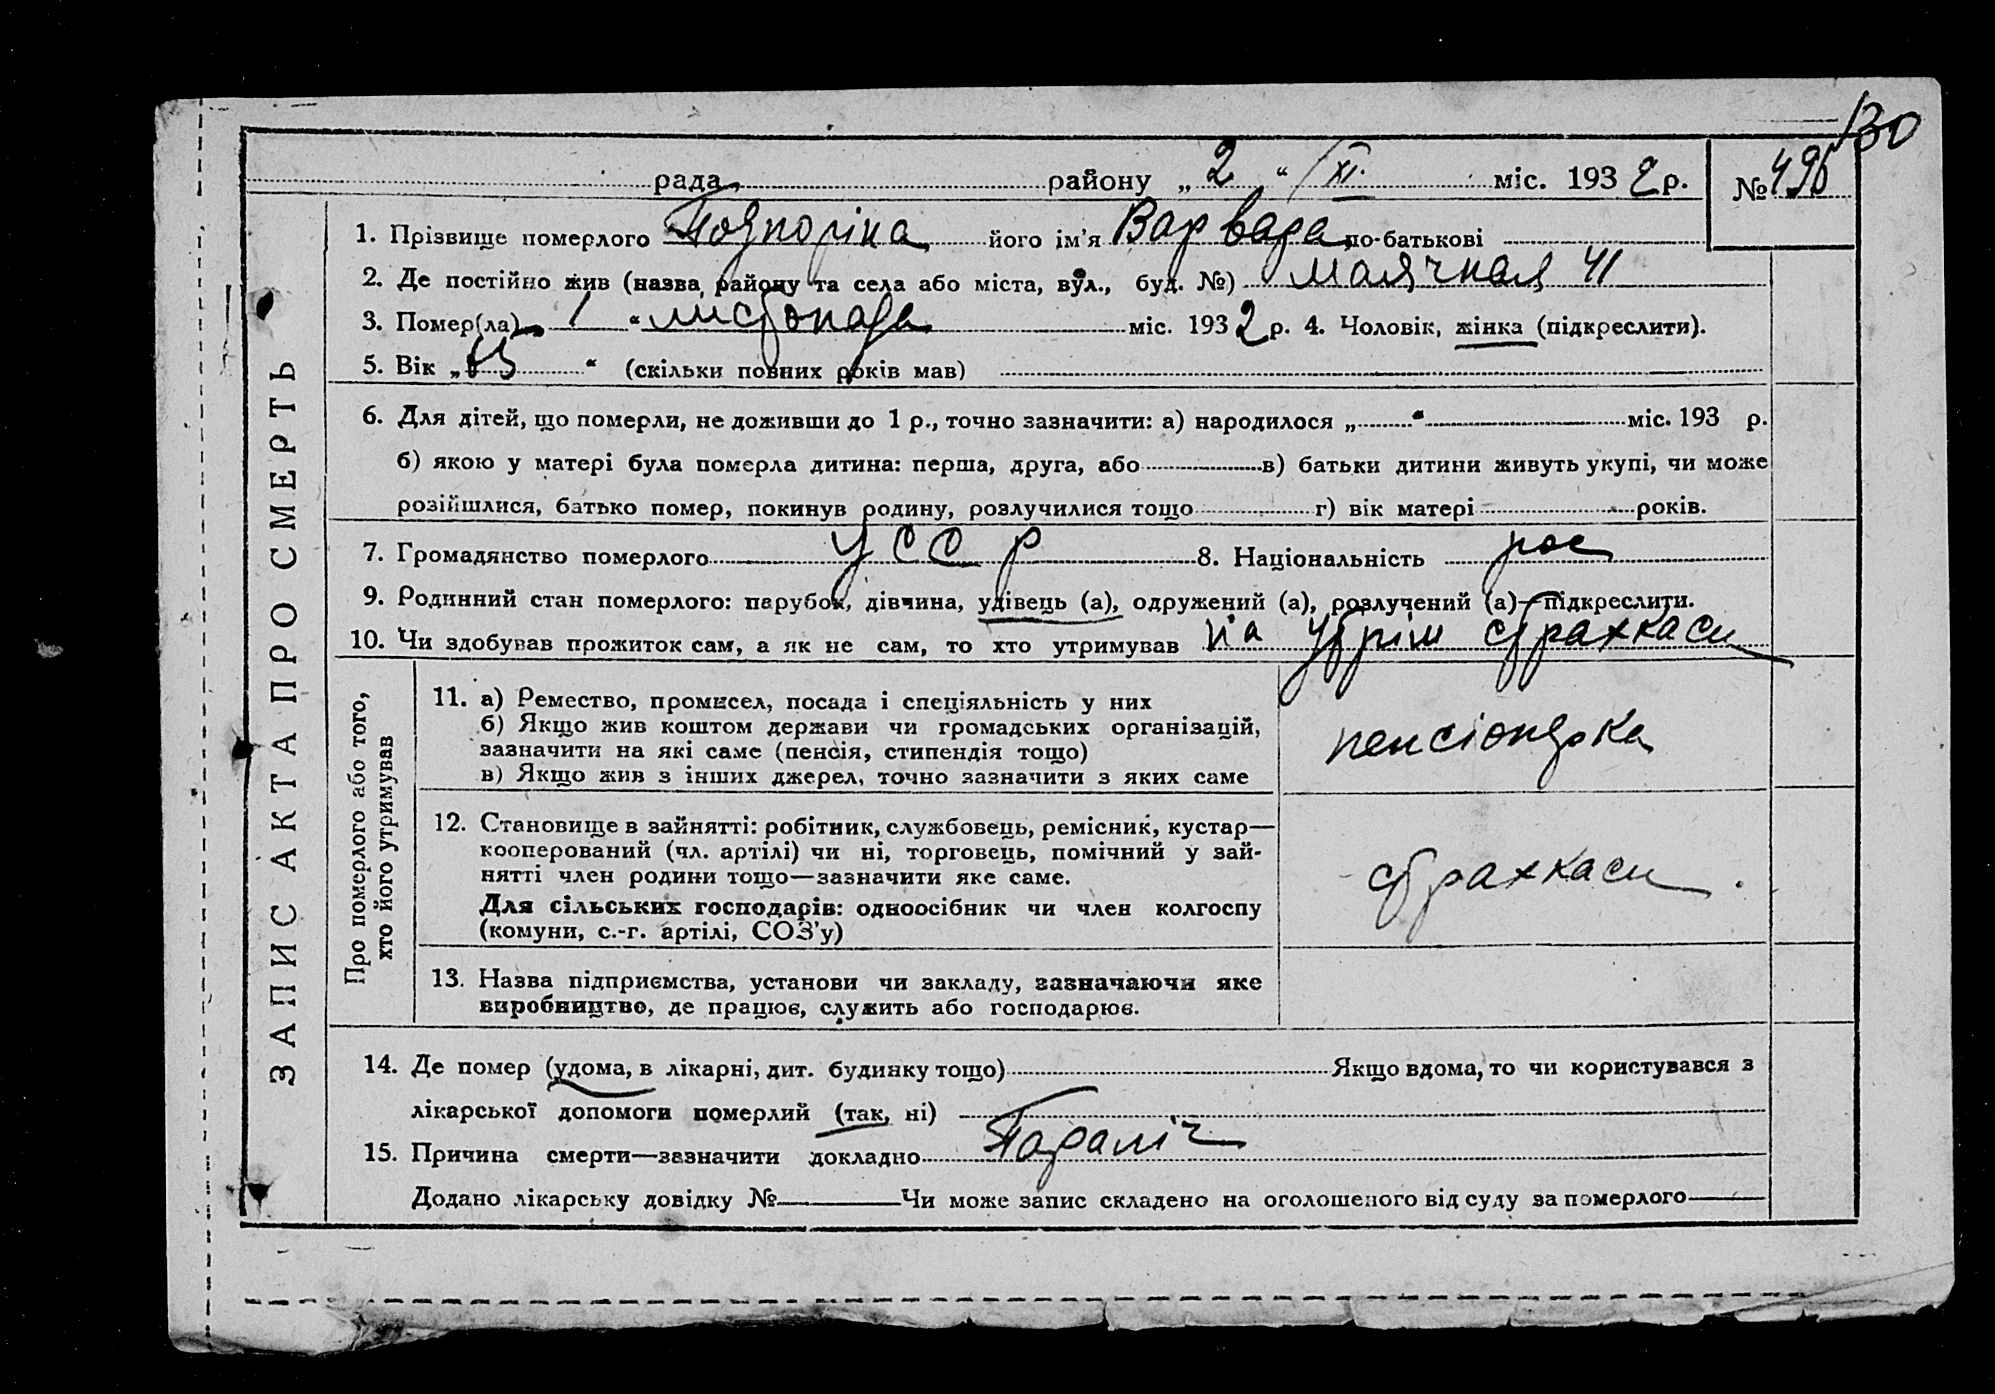 130
рада районy „ 2 “ XI. міс. 1932 р. № 496
1. Прізвище померлого його ім'я Варвара по-батькові
2. Де постійно жив (назва району та села або міста, вул., буд. №) Маячная 41
3. Помер(ла) 1 “ листопада міс. 1932 р. 4. Чоловік, жінка (підкреслити).
5. Вік „ “ (скільки повних років мав)
6. Для дітей, що померли, не доживши до 1 р., точно зазначити: а) народилося „ “ міс. 193 р.
б) якою у матері була померла дитина: перша, друга, або в) батьки дитини живуть укупі, чи може
розійшлися, батько помер, покинув родину, розлучилися тощо г) вік матері років.
7. Громадянство померлого УССР 8. Національність рос
9. Родинний стан померлого: парубок, дівчина, удівець (а), одружений (а), розлучений (а)—підкреслити.
10. Чи здобував прожиток сам, а як не сам, то хто утримував на утрім страхкаси
ЗАПИС АКТА ПРО СМЕРТЬ
Про померлого або того,
хто його утримував
11. а) Ремество, промисел, посада і спеціяльність у них
б) Якщо жив коштом держави чи громадських організацій,
зазначити на які саме (пенсія, стипендія тощо)
в) Якщо жив з інших джерел, точно зазначити з яких саме
пенсіонерка
12. Становище в зайнятті: робітник, службовець, ремісник, кустар—
кооперований (чл. артілі) чи ні, торговець, помічний у зай-
нятті член родини тощо—зазначити яке саме.
Для сільських господарів: одноосібник чи член колгоспу
(комуни, с.-г. артілі, СОЗ'у)
страхкаси.
13. Назва підприємства, установи чи закладу, зазначаючи яке
виробництво, де працює, служить або господарює.
14. Де помер (удома, в лікарні, дит. будинку тощо) Якщо вдома, то чи користувався з
лікарської допомоги померлий (так, ні)
15. Причина смерти—зазначити докладно Параліч
Додано лікарську довідку № Чи може запис складено на оголошеного від суду за померлого